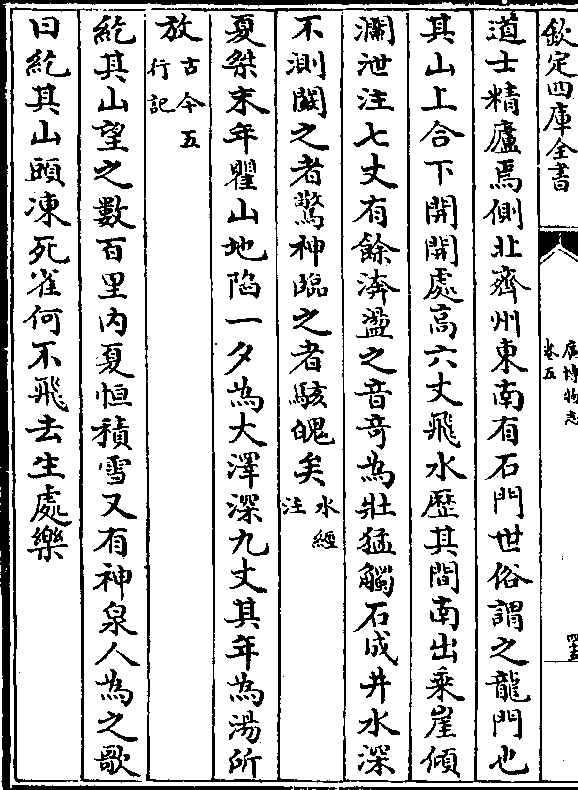 欽定四庫全書
廣博物志
卷五
四五
道士精廬焉側北濟州東南有石門世俗謂之龍門也
其山上合下開開處高六丈飛水歷其間南出乘崖傾
瀾泄注七丈有餘渀盪之音奇為壯猛觸石成井水深
不測闞之者驚神臨之者駭魄矣水經注
夏桀末年瞿山地陷一夕為大澤深九丈其年為湯所
放古今五行記
紇其山望之數百里内夏恒積雪又有神泉人為之歌
曰紇其山頭凍死雀何不飛去生處樂